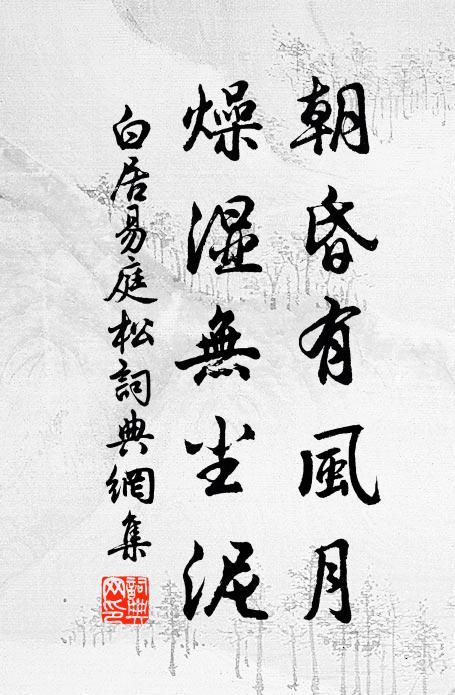 朝昏有風月
燥湿無尘泥
白居易庭松詞典網集
詞典
网印